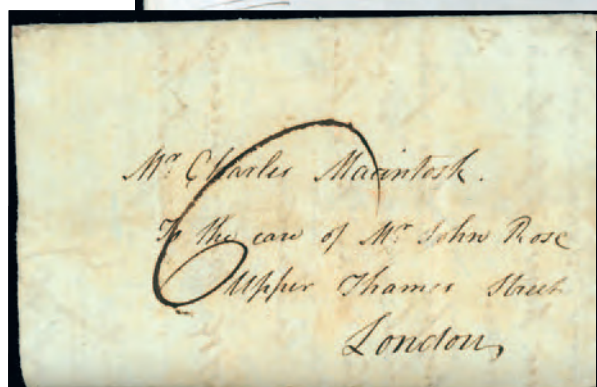 Mr Charles Macintosh.
6
To the care of Mr John Rose
Upper Thames Street
London,